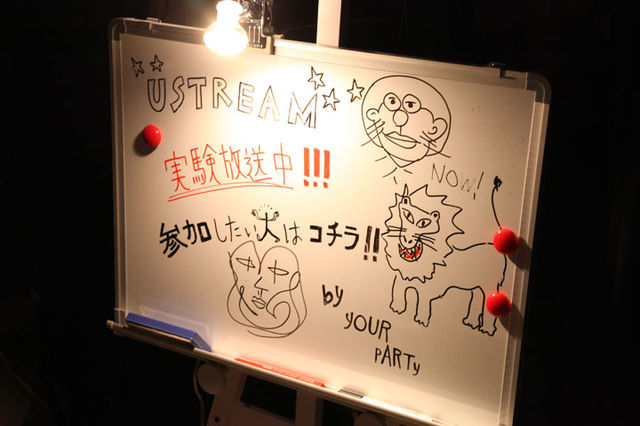 USTREAM
実験放送中!!!
NOW!
参加したい人はコチラ!!
by
YOUR
PARTy